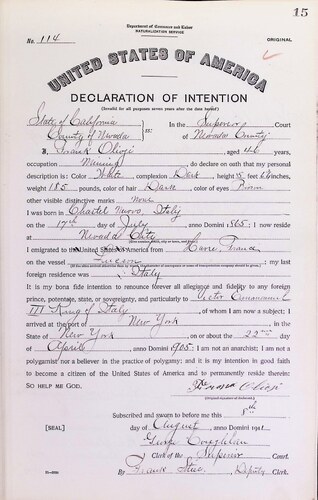 15
Department of Commerce and Labor
NATURALIZATION SERVICE
No. 114
ORIGINAL
UNITED STATES OF AMERICA
DECLARATION OF INTENTION
(Invalid for all purposes seven years after the date hereof)
State of California
County of Nevada
ss:
In the Superior Court
of Nevada County
I, Frank, aged 46 years,
occupation Mining, do declare on oath that my personal
description is: Color White, complexion Dark, height 5 feet 6 inches,
weight 185 pounds, color of hair Dark, color of eyes Brown
other visible distinctive marks none
I was born in Nuovo, Italy
on the 17th day of July, anno Domini 1865; I now reside
at Nevada City
I emigrated to the United States of America from Havre, France
on the vessel; my last
foreign residence was Italy
It is my bona fide intention to renounce forever all allegiance and fidelity to any foreign
prince, potentate, state, or sovereignty, and particularly to Victor Emmanuel
III King of Italy, of whom I am now a subject; I
arrived at the port of New York, in the
State of New York on or about the 22nd day
of April, anno Domini 1905; I am not an anarchist; I am not a
polygamist nor a believer in the practice of polygamy; and it is my intention in good faith
to become a citizen of the United States of America and to permanently reside therein:
SO HELP ME GOD.
(Original signature of declarant)
Subscribed and sworn to before me this 8th
[SEAL]
day of August, anno Domini 191
George Coughlan
Clerk of the Superior Court.
By Frank, Deputy Clerk.